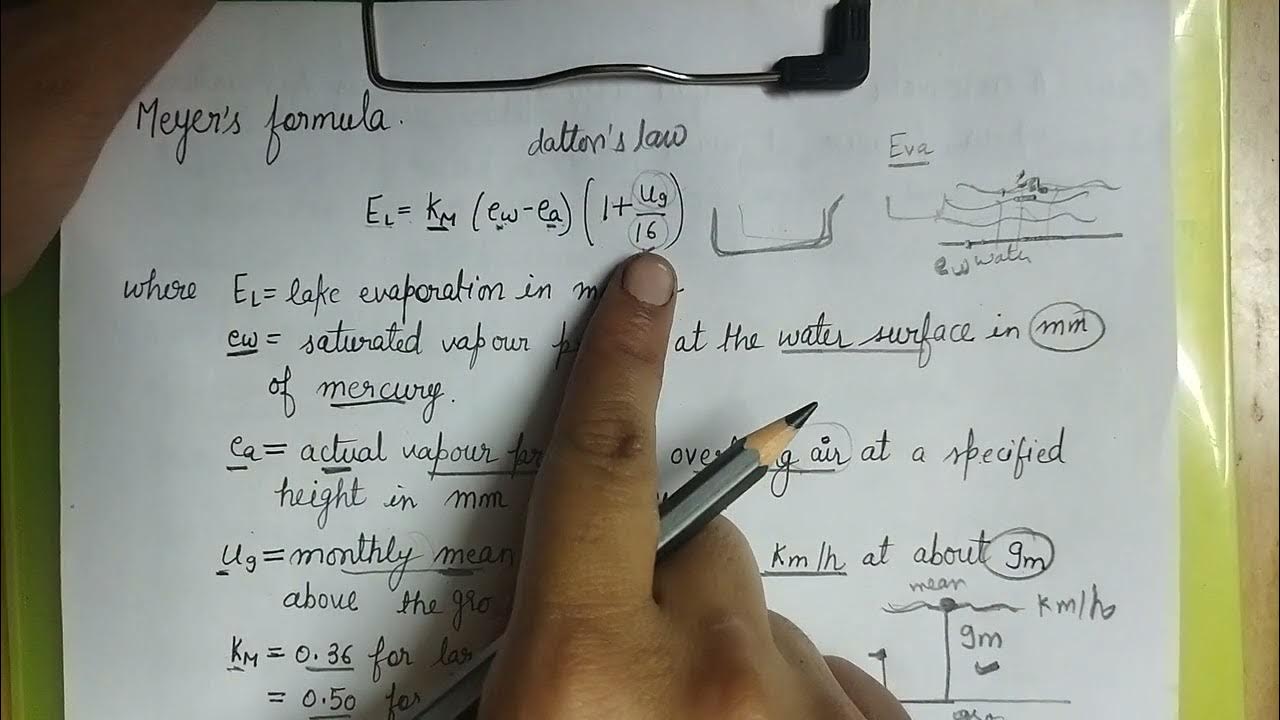 Meyer's formula.
dalton's law
Eva
E_L = K_M (e_w - e_a) (1 + u_9/16)
e_w water
where E_L = lake evaporation in
e_w = saturated vapour at the water surface in mm
of mercury.
e_a = actual vapour air at a specified
height in mm
u_9 = monthly mean km/h at about 9m
above the
mean
km/h
9m
K_M = 0.36 for
= 0.50